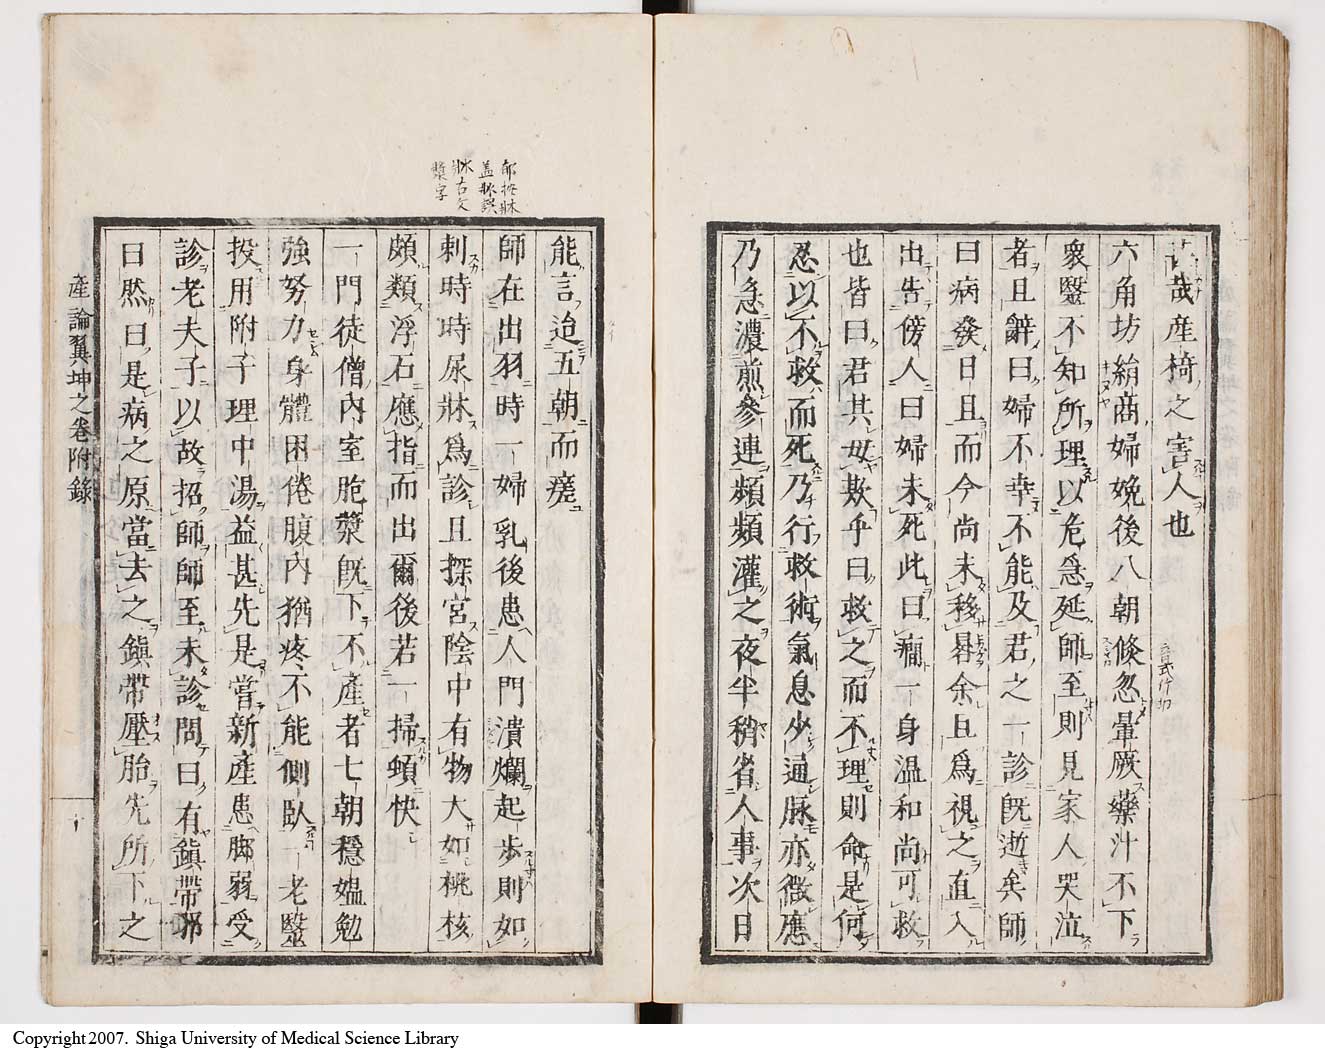 哉産椅之害人也
六角坊絹商婦娩後八朝倏忽暈厥藥汁不下
衆醫不知所理以危急延師至則見家人哭泣
者且辭曰婦不幸不能及君之一診既逝矣師
曰病發日且而今尚未移晷余且爲視之直入
出告傍人曰婦未死此曰癇一身温和尚可救
也皆曰君其毋欺乎曰救之而不理則命是何
忍以不救而死乃行救術氣息少通脉亦微應
乃急濃煎參連頻頻灌之夜半稍省人事次日
能言迨五朝而瘥
師在出羽時一婦乳後患人門潰爛起步則如
刺時時尿牀爲診且探宮陰中有物大如桃核
頗類浮石應指而出爾後若一掃頓快
一門徒僧內室胞漿既下不產者七朝穩媼勉
強努力身體困倦腹內猶疼不能側臥一老醫
投用附子理中湯益甚先是嘗新產患脚弱受
診老夫子以故招師師至未診問曰有鎮帶邪
曰然曰是病之原當去之鎮帶壓胎先所下之
產論翼坤之卷附錄
牀古文
漿字
Copyright 2007. Shiga University of Medical Science Library